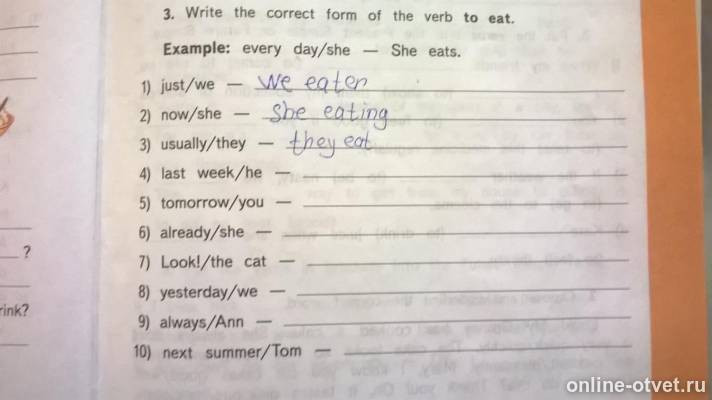 3. Write the correct form of the verb to eat.
Example: every day/she — She eats.
1) just/we — we eaten
2) now/she — she eating
3) usually/they — they eat
4) last week/he —
5) tomorrow/you —
6) already/she —
?
7) Look!/the cat —
8) yesterday/we —
rink?
9) always/Ann —
10) next summer/Tom —
online-otvet.ru